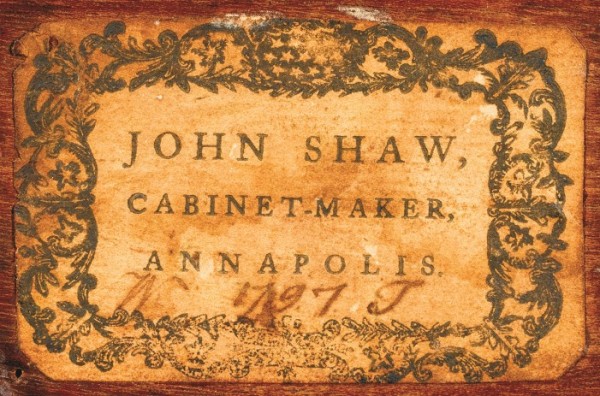 JOHN SHAW,
CABINET-MAKER,
ANNAPOLIS.
W 1797 T